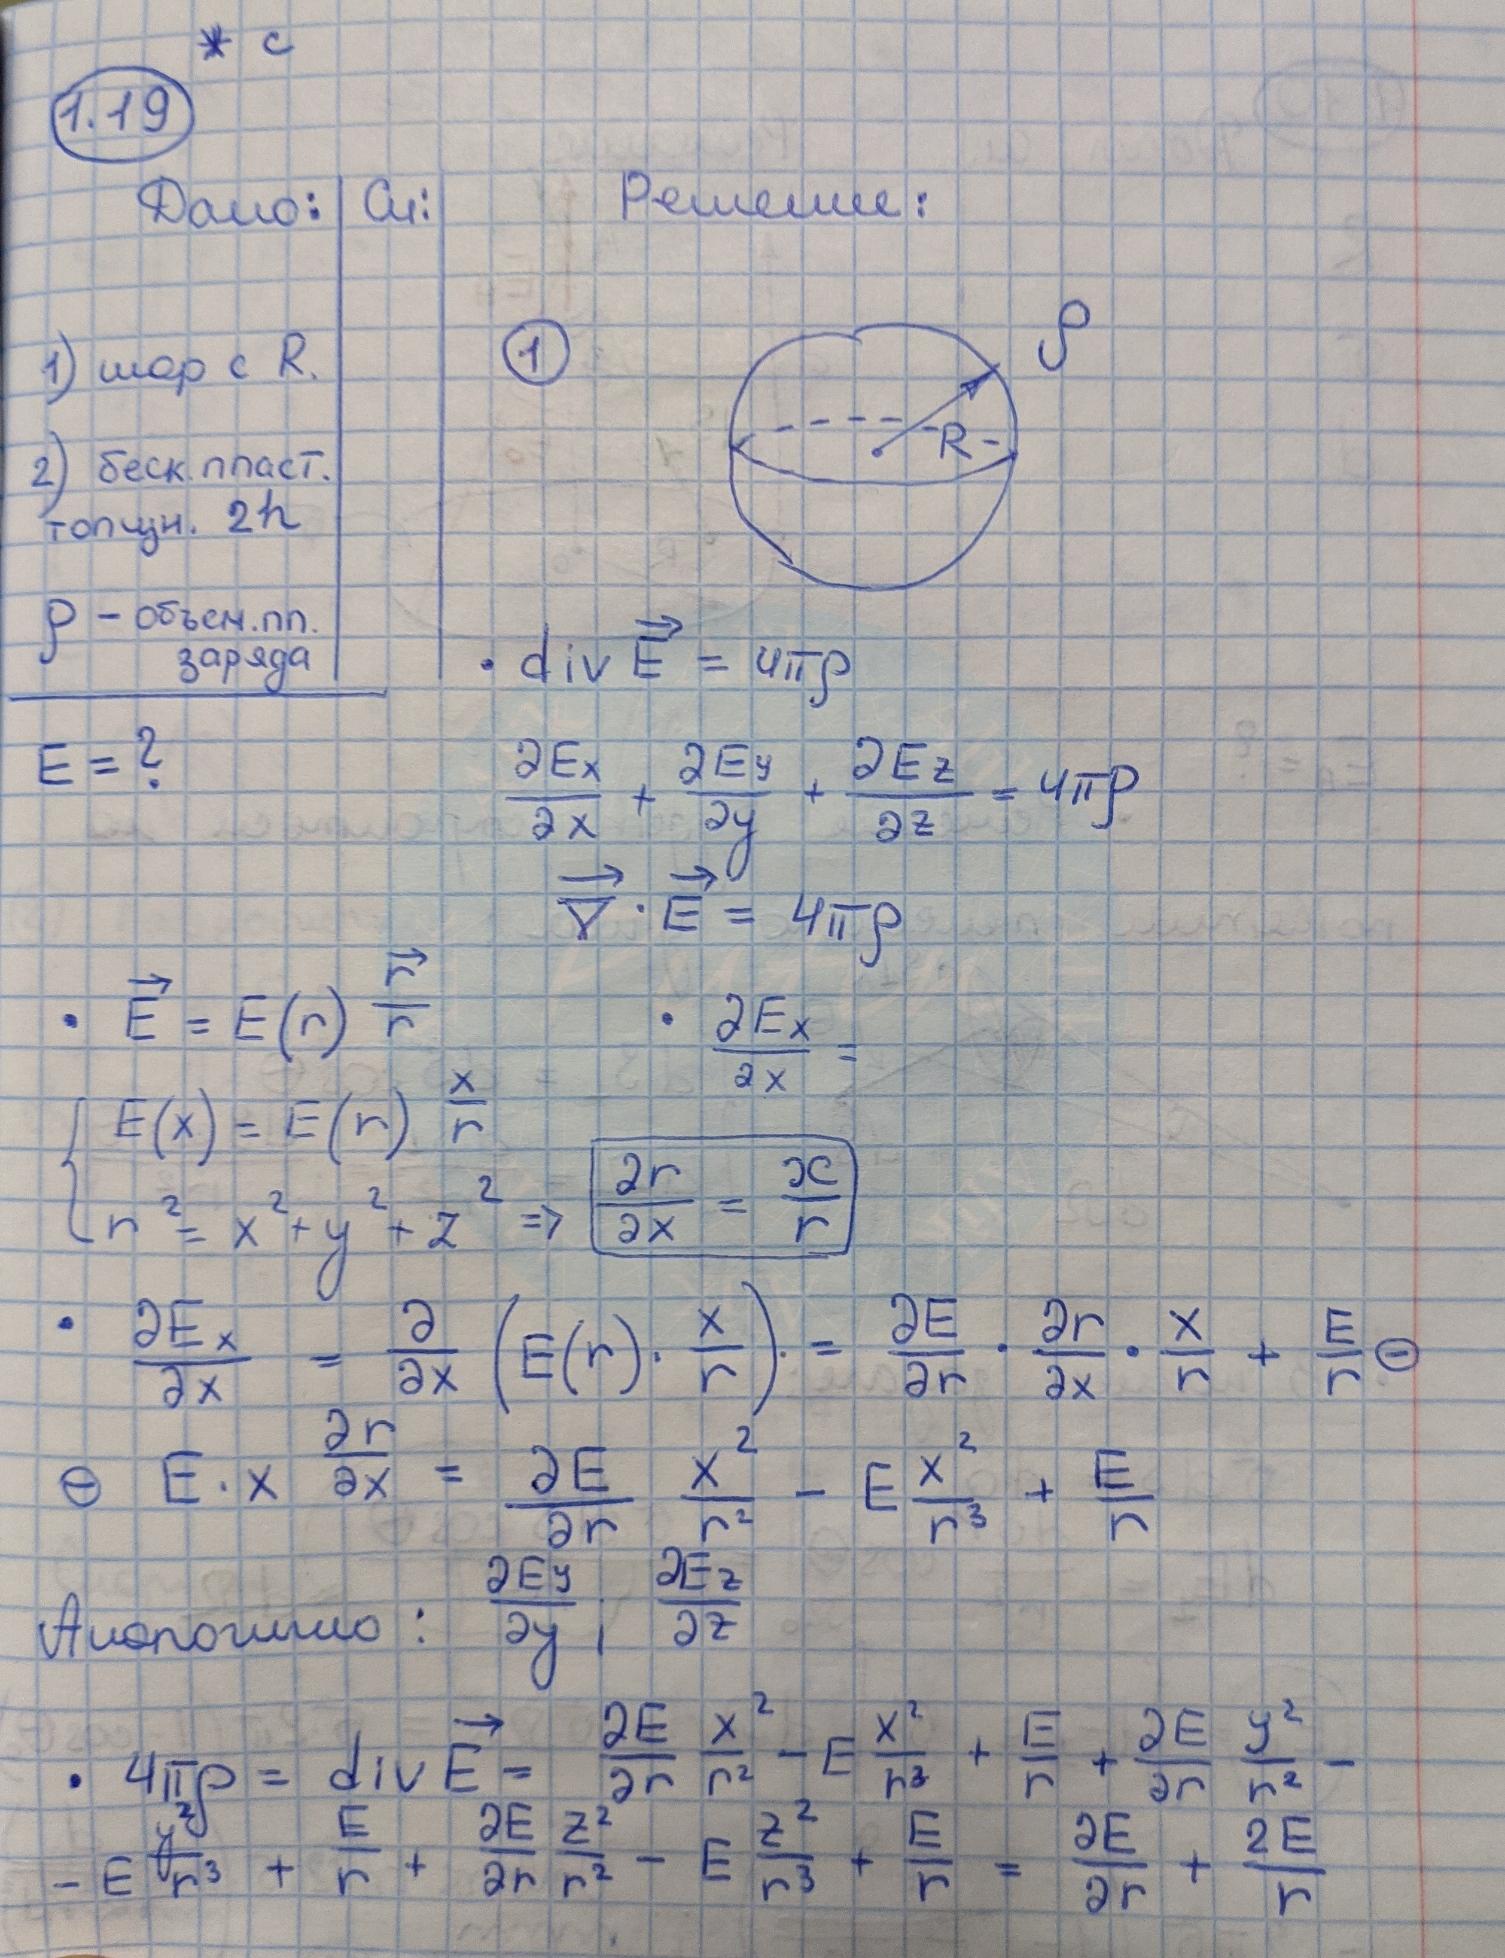 * c
1.19
Дано: Си: Решение:
1) шар с R.
2) беск. пласт.
толщн. 2h
ρ - объем. пл.
заряда
E = ?
1
ρ
R
• div E⃗ = 4πρ
∂Ex/∂x + ∂Ey/∂y + ∂Ez/∂z = 4πρ
∇⃗ · E⃗ = 4πρ
• E⃗ = E(r) r⃗/r • ∂Ex/∂x =
{ E(x) = E(r) x/r
r² = x² + y² + z² => ∂r/∂x = x/r
• ∂Ex/∂x = ∂/∂x (E(r) · x/r) · = ∂E/∂r · ∂r/∂x · x/r + E/r ⊖
⊖ E · x ∂r/∂x = ∂E/∂r x²/r² - E x²/r³ + E/r
Аналогично: ∂Ey/∂y ; ∂Ez/∂z
• 4πρ = div E⃗ = ∂E/∂r x²/r² - E x²/r³ + E/r + ∂E/∂r y²/r² -
- E y²/r³ + E/r + ∂E/∂r z²/r² - E z²/r³ + E/r = ∂E/∂r + 2E/r